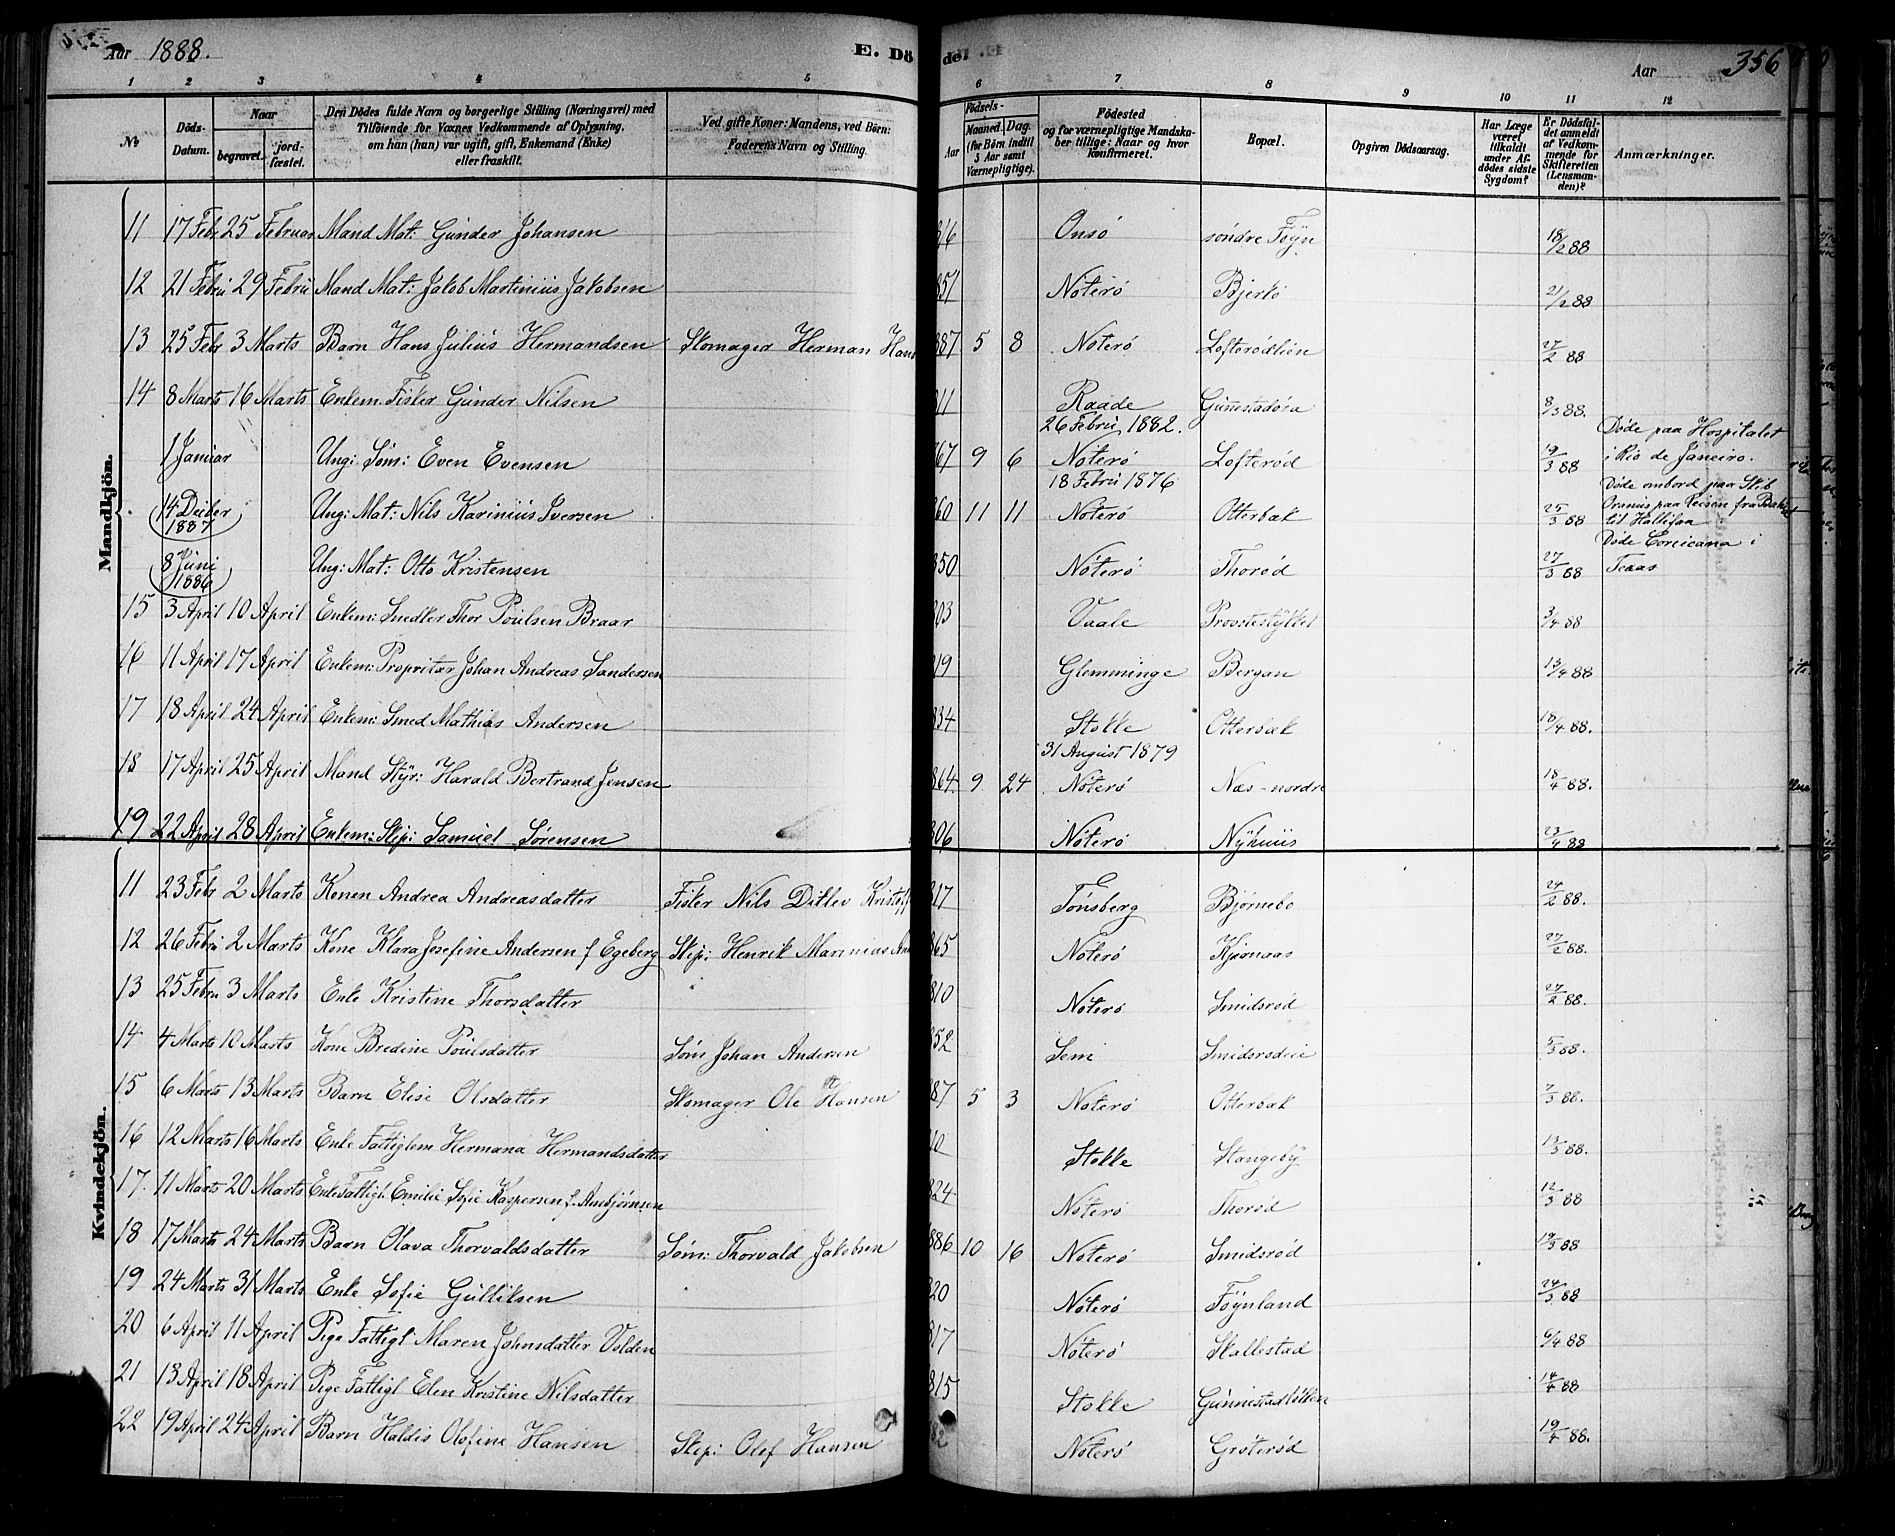 Aar 1888.
E. Dö
del
Aar
356
1 2 3 4 5 6 7 8 9 10 11 12
No
Döds-Datum.
Naar
begravet.
jord-fæstet.
Den Dödes fulde Navn og borgerlige Stilling (Næringsvei) med
Tilföiende for Voxnes Vedkommende af Oplysning,
om han (hun) var ugift, gift, Enkemand (Enke)
eller fraskilt.
Ved gifte Koner: Mandens, ved Börn:
Faderens Navn og Stilling.
Födsels-
Aar
Maaned.
Dag.
(for Börn indtil
5 Aar samt
Værnepligtige).
Födested
og for værnepligtige Mandska-
ber tillige: Naar og hvor
konfirmeret.
Bopæl.
Opgiven Dödsaarsag.
Har Læge
været
tilkaldt
under Af-
dödes sidste
Sygdom?
Er Dödsfal-
det anmeldt
af Vedkom-
mende for
Skifteretten
(Lensman-
den)?
Anmærkninger.
Mandkjön.
11 17 Febr 25 Februar Mand Mat: Gunder Johansen Onsö söndre Föyn 18/2 88
12 21 Febru 29 Febru Mand Mat: Jakob Martinius Jakobsen 851 Nöterö Bjerkö 21/2 88
13 25 Febr 3 Marts Barn Hans Julius Hermandsen Skomager Herman Hans 887 5 8 Nöterö Lofterödlien 27/2 88
14 8 Marts 16 Marts Enkem. Fisker Gunder Nilsen 811 Raade Gunnestadösa 8/3 88.
1 Januar Ung: Söm: Even Evensen 867 9 6 26 Febru 1882. Nöterö Lofteröd 19/3 88 Döde paa Hospitalet i Rio de Janeiro.
14 Decber 1887 Ung: Mat: Nils Karinius Iversen 860 11 11 18 Febru 1876 Nöterö Otterbæk 25/3 88 Döde ombord paa Skib Oranius paa Reisen fra til Hallifax
8 Juni 1886 Ung: Mat: Otto Kristensen 850 Nöterö Thoröd 27/3 88 Döde Corsicana i Texas
15 3 April 10 April Enkem: Snedker Thor Poulsen Braar 803 Vaale Provstestykket 3/4 88
16 11 April 17 April Enkem: Propritær Johan Andreas Sandersen 819 Glemminge Bergan 13/4 88
17 18 April 24 April Enkem: Smed Mathias Andersen 834 Stokke Otterbæk 18/4 88.
18 17 April 25 April Mand Styr: Harald Bertrand Jensen 864. 9 24 31 August 1879 Nöterö Næs-nordre 18/4 88.
19 22 April 28 April Enkem: Skip: Samuel Sörensen 806 Nöterö Nyhuus 23/4 88
Kvindekjön.
11 23 Febr 2 Marts Konen Andrea Andreasdatter Fisker Nils Ditlev Kristoff 817 Tönsberg Björnebo 24/2 88.
12 26 Febru 2 Marts Kone Klara Josefine Andersen f Egeberg Skip: Henrik Marinius An 865 Nöterö Kjörnaas 27/2 88.
13 25 Febru 3 Marts Enke Kristine Thorsdatter 810 Nöterö Smidsröd 27/2 88.
14 4 Marts 10 Marts Kone Bredine Poulsdatter Söm Johan Andersen 852 Sem Smidsrödeie 5/3 88.
15 6 Marts 13 Marts Barn Elise Olsdatter Skomager Ole Hansen 887 5 3 Nöterö Otterbæk 7/3 88.
16 12 Marts 16 Marts Enke Fattiglem Hermana Hermandsdatter Stokke Stangeby 13/3 88.
17. 11 Marts 20 Marts Enke Fattigl. Emilie Sofie Kaspersen f. Ambjörnsen 824 Nöterö Thoröd 12/3 88
18 17 Marts 24 Marts Barn Olava Thorvaldsdatter Söm: Thorvald Jakobsen 886 10 16 Nöterö Smidsröd 19/3 88
19 24 Marts 31 Marts Enke Sofie Gulliksen 820 Nöterö Föynland 24/3 88
20 6 April 11 April Pige Fattigl Maren Johnsdatter Volden 817 Nöterö Skallestad 6/4 88
21 13 April 18 April Pige Fattigl Elen Kristine Nilsdatter 815 Stokke Gunnestadholmen 14/4 88
22 19 April 24 April Barn Haldis Olofine Hansen Skip: Olef Hansen 882 Nöterö Gröteröd 19/4 88.